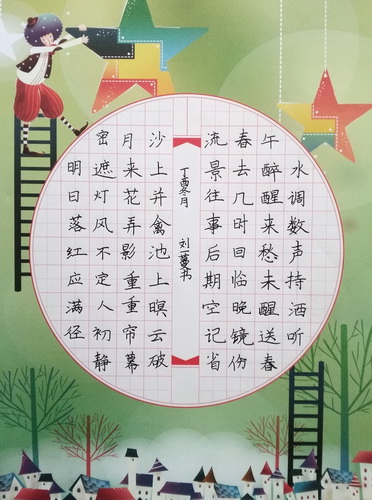 水调数声持酒听
午醉醒来愁未醒送春
春去几时回临晚镜伤
流景往事后期空记省
丁酉冬月
沙上并禽池上暝云破
月来花弄影重重帘幕
密遮灯风不定人初静
明日落红应满径